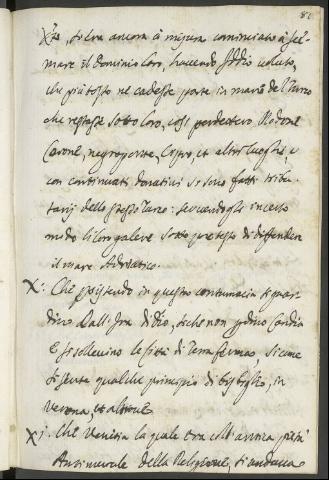 81
si era ancora à misura cominciato à
mare il Dominio loro, havendo Iddio voluto,
che più tosto ne cadesse parte in mano del Turco
che restasse sotto loro, così perdettero Modone
Corone, negroponte, Cipro, et altri luoghi, e
con continuati donativi si sono fatti tribu
tarij dello stesso Turco: servendogli in certo
modo li loro galere sotto pretesto di diffender
il mare Adriatico.
X. Che persistendo in questa contumacia si
dall' Ira di Dio, che non perdino Candia
e si sollevino le Città di Terra ferma, si come
si sente qualche principio di bisbiglio, in
Verona, et altrove
Xj. Che Venetia la quale era coll' antica
Antimurale della Religione, si andava